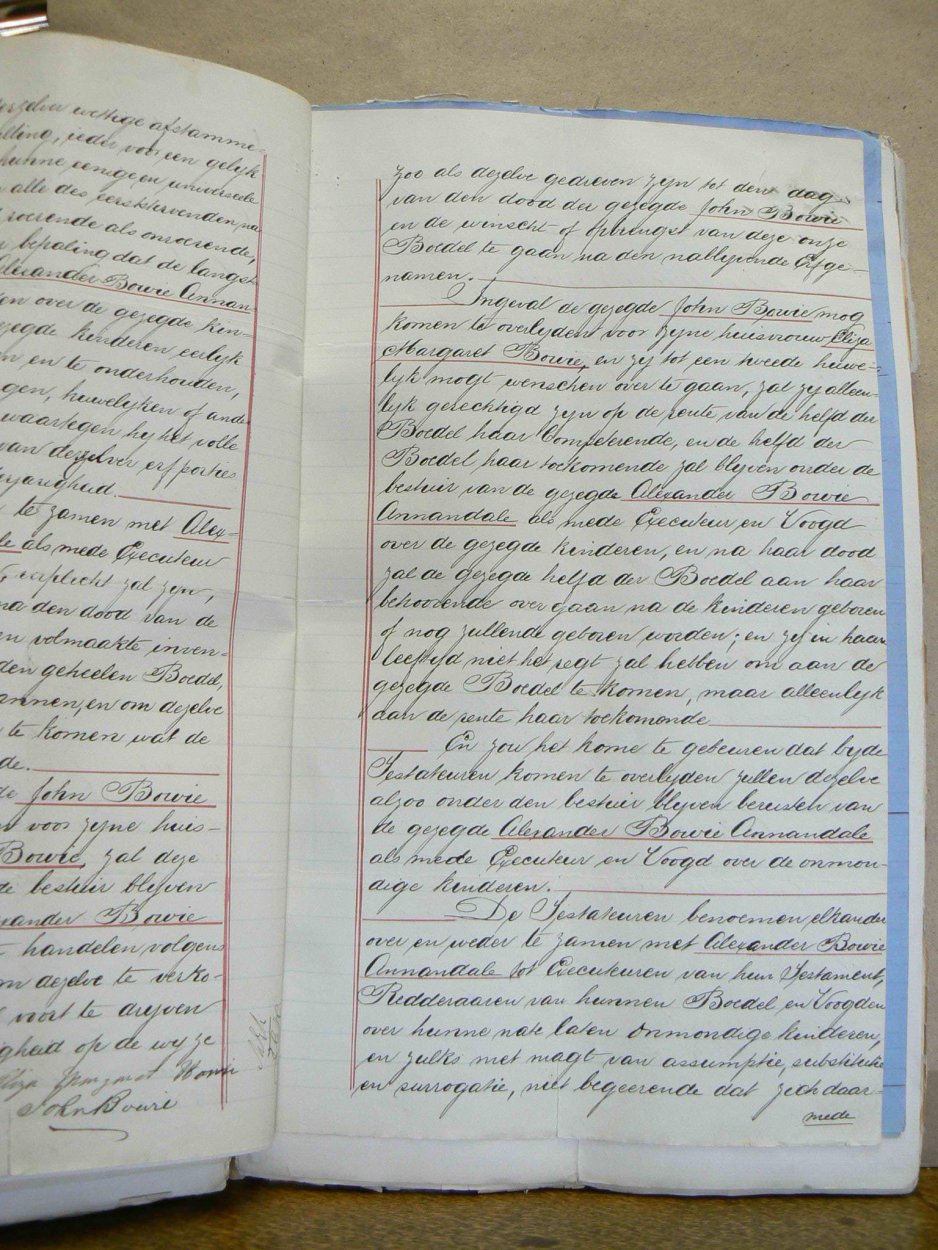 wettige afstamme-
lling, ieder voor een gelyk
hunne eenige en universeele
alle des eerststervenden na
roerende als onroerende,
bepaling dat de langst
Alexander Bowie Annan-
en over de gezegde kin-
zegde kinderen eerlyk
en te onderhouden,
gen, huwelyken of ande
waartegen hy het volle
van derzelver erfporties
te zamen met Alex-
als mede Executeur
verplicht zal zyn,
na den dood van de
en volmaakte inven-
den geheelen Boedel,
en om dezelve
te komen wat de
de.
de John Bowie
voor zyne huis-
Bowie, zal deze
de bestuir blyven
xander Bowie
handelen volgens
m dezelve te verko-
voort te dryven
igheid op de wyze
John Bowie
zoo als dezelve gedreven zyn tot den dag
van den dood der gezegde John Bowie
en de winscht of opbrengst van deze onze
Boedel te gaan na den nablyvende Erfge-
namen.
Ingeval de gezegde John Bowie mog
komen te overlyden voor zyne huisvrouw Eliza
Margaret Bowie, en zij tot een tweede huwe-
lyk mogt wenschen over te gaan, zal zy alleen-
lyk gerechtigd zyn op de rente van de helfd der
Boedel haar Competeerende, en de helfd der
Boedel haar toekomende zal blyven onder de
bestuir van de gezegde Alexander Bowie
Annandale als mede Executeur en Voogd
over de gezegde kinderen, en na haar dood
zal de gezegde helfd der Boedel aan haar
behoorende over gaan na de kinderen geboren
of nog zullende geboren worden; en zij in haar
leeftyd niet het regt zal hebben om aan de
gezegde Boedel te komen, maar alleenlyk
aan de rente haar toekomende
En zou het kome te gebeuren dat byde
Testateuren komen te overlyden zullen dezelve
alzoo onder den bestuir blyven berusten van
de gezegde Alexander Bowie Annandale
als mede Executeur en Voogd over de onmon-
dige kinderen.
De Testateuren benoemen elkander
over en weder te zamen met Alexander Bowie
Annandale tot Executeuren van hun Testament,
Redderaaren van hunnen Boedel en Voogden
over hunne nate laten onmondige kinderen,
en zulks met magt van assumptie, substitutie
en surrogatie, niet begeerende dat zich daar-
mede